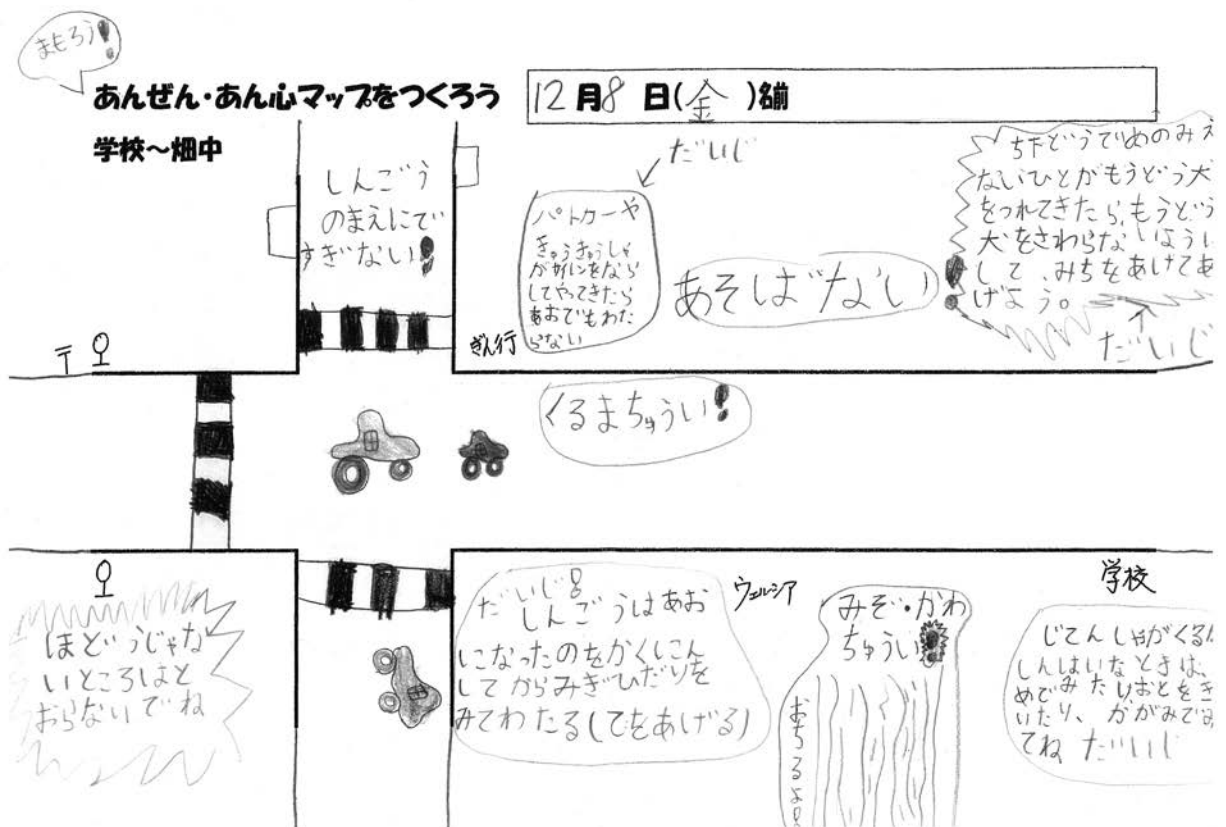 まもろう!
あんぜん・あん心マップをつくろう
12月8日(金)名前
学校~畑中
しんごう
のまえにで
すぎない!
だいじ
パトカーや
きゅうきゅうしゃ
がサイレンをなら
してやってきたら
あおでもわた
らない
あそばない!
ち下どうでめのみえ
ないひとがもうどう犬
をつれてきたら、もうどう
犬をさわらないように
して、みちをあけてあ
げよう。
だいじ
〒
ぎん行
くるまちゅうい!
ほどうじゃな
いところはと
おらないでね
だいじ
しんごうはあお
になったのをかくにん
してからみぎひだりを
みてわたる(てをあげる)
ウェルシア
みぞ・かわ
ちゅうい!
おちるよ
学校
じてんしゃがくるか
しんぱいなときは、
めでみたりおとをき
いたり、かがみでみ
てね だいじ